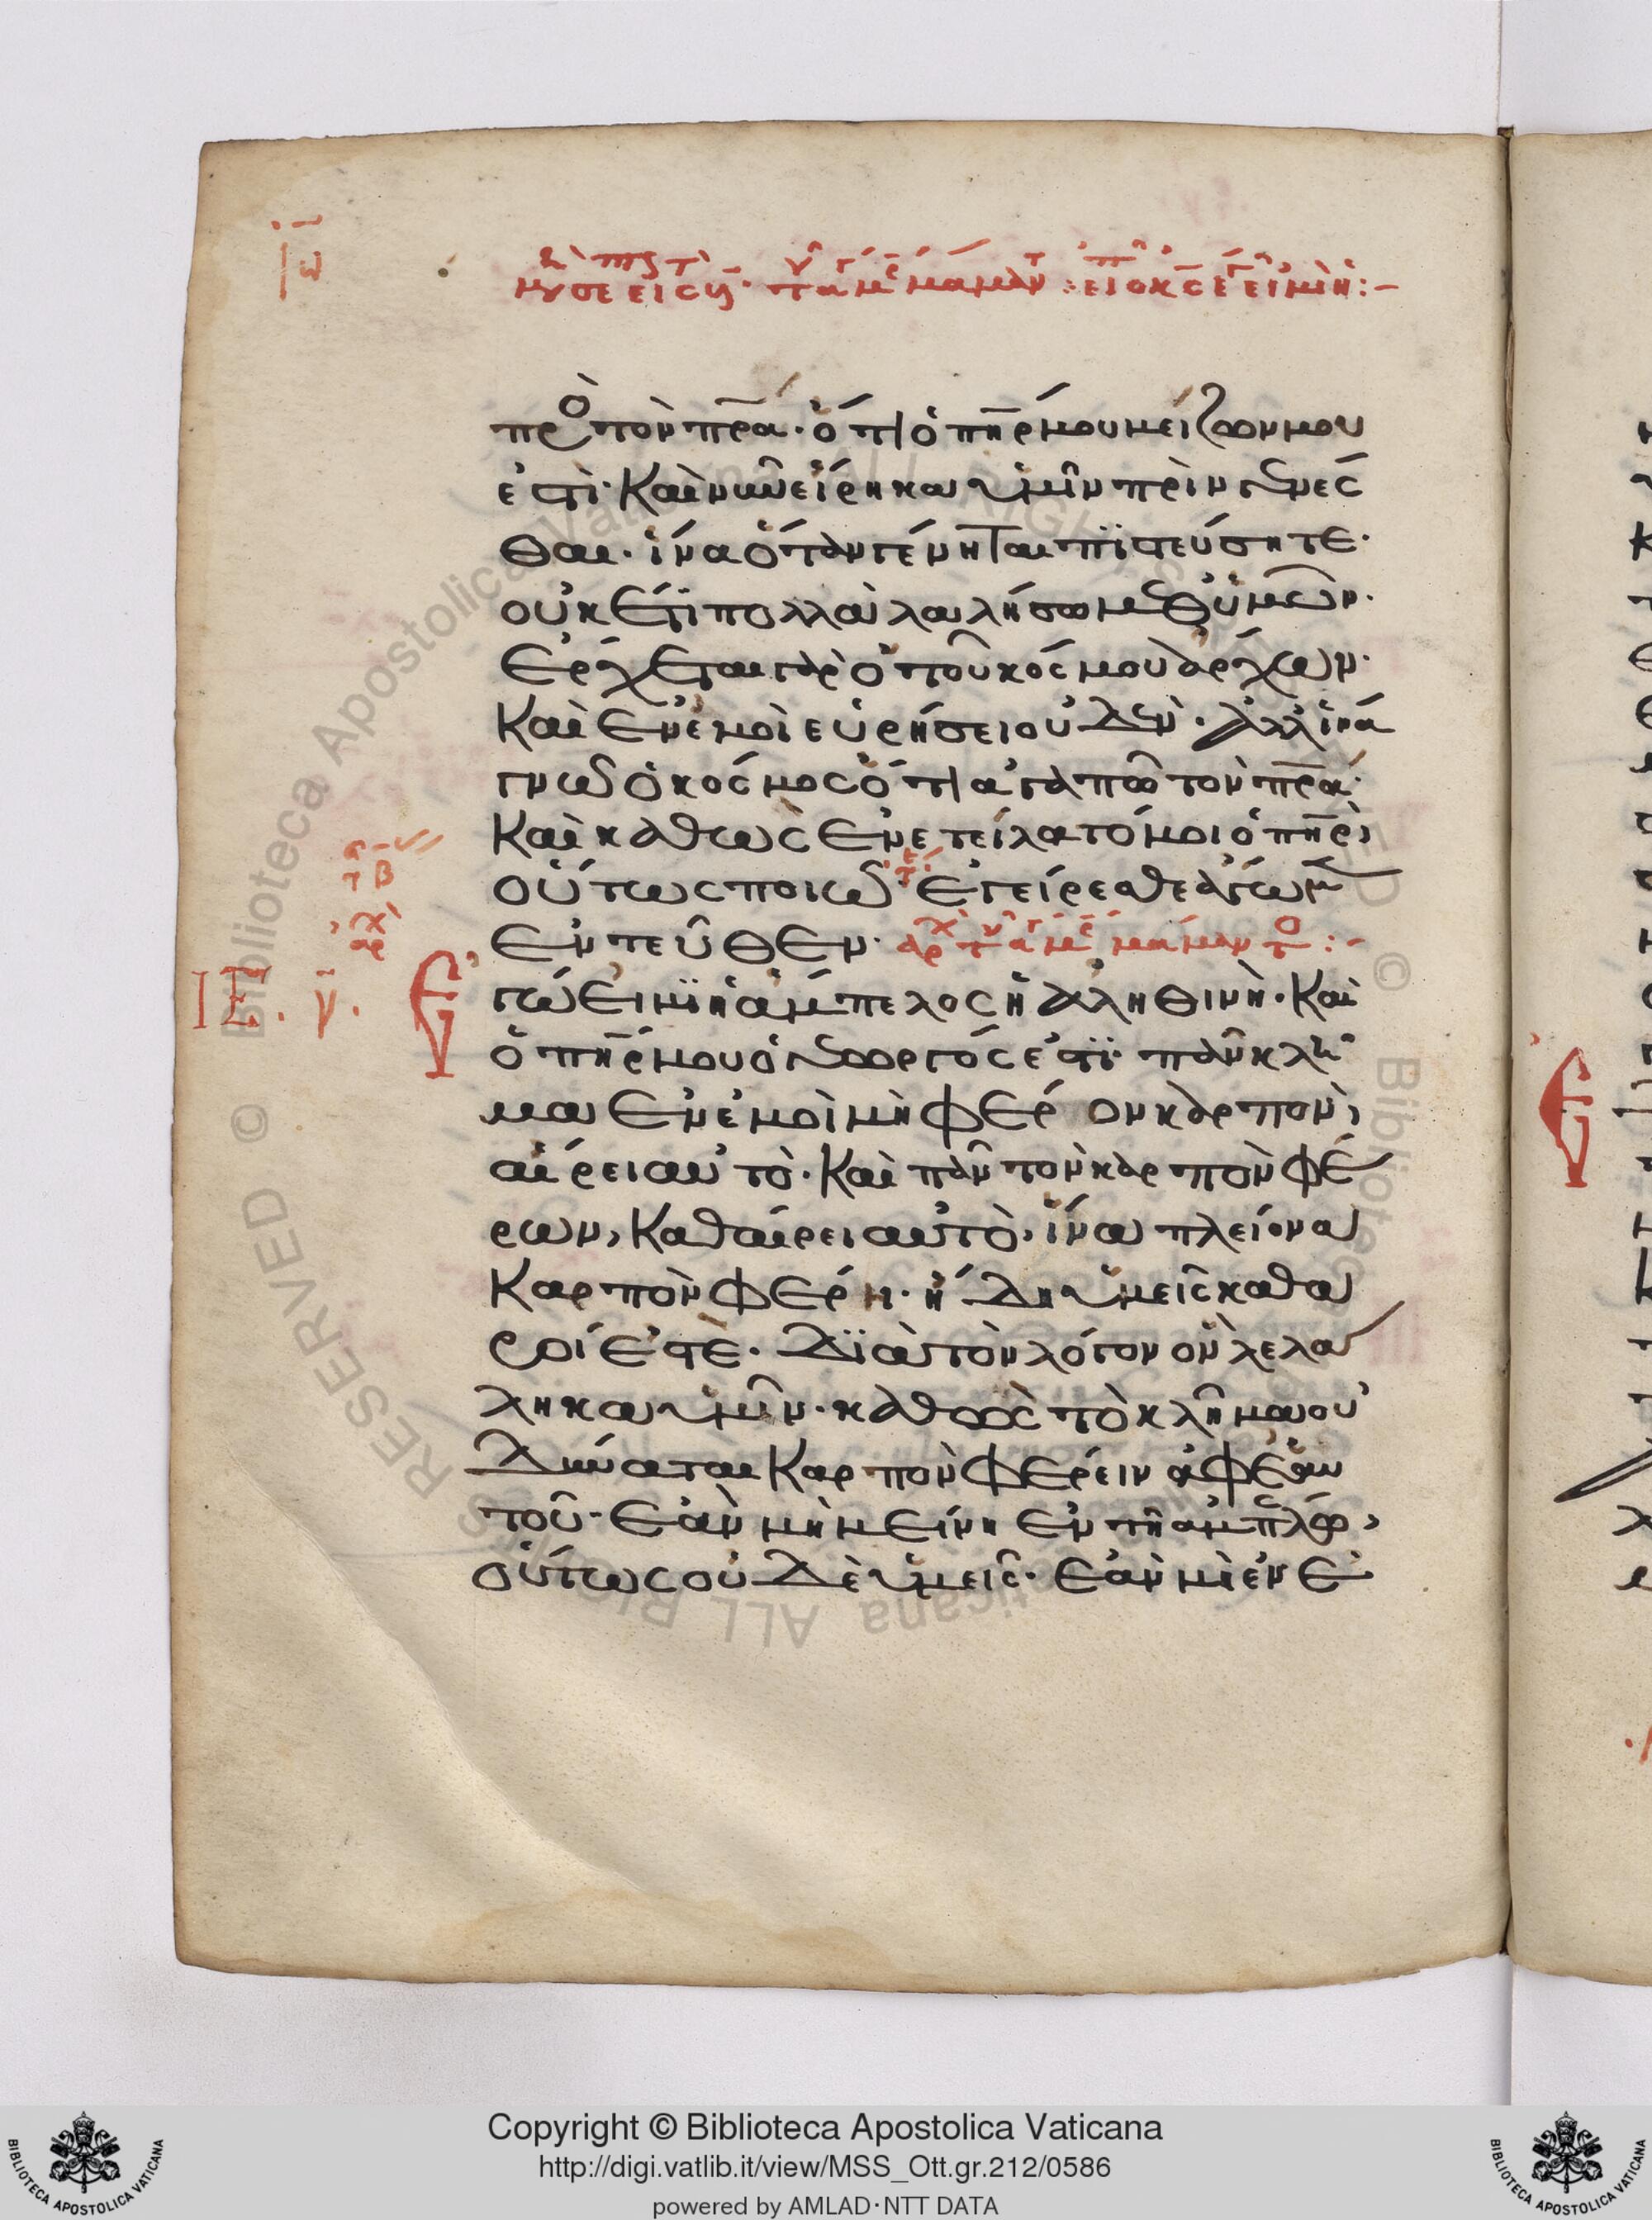 πρὸ τὸν πρ̅α· ὅτι ὁ πη̅ρ μου μείζων μου
ἐστὶ· Καὶ νῦν εἴρηκα ὑμῖν πρὶν γενές
θαι· ἵνα ὅταν γένηται πιστεύσητε·
οὐκέτι πολλὰ λαλήσω μεθ ὑμῶν·
Ἔρχεται γὰρ ὁ τοῦ κόσμου ἄρχων·
Καὶ ἐν ἐμοὶ εὑρήσει οὐδὲν· ἀλλ ἵνα
γνῶ ὁ κόσμος ὅτι ἀγαπῶ τὸν πρ̅α·
Καὶ καθὼς ἐνετείλατό μοι ὁ πη̅ρ,
οὕτως ποιῶ· ἐγείρεσθε ἄγωμεν
ἐντεῦθεν·
ΙΕ. γ. Ἐ
γώ εἰμι ἡ ἄμπελος ἡ ἀληθινὴ· Καὶ
ὁ πη̅ρ μου ὁ γεωργός ἐστι· πᾶν κλῆ
μα ἐν ἐμοὶ μὴ φέρον καρπὸν,
αἴρει αὐτὸ· Καὶ πᾶν τὸν καρπὸν φέ
ρων, Καθαίρει αὐτὸ, ἵνα πλείονα
Καρπὸν φέρη· ἤδη ὑμεῖς καθα
ροί ἐστὲ· Διὰ τὸν λόγον ὃν λελά
ληκα ὑμῖν· καθὼς τὸ κλῆμα οὐ
Δύναται Καρπὸν φέρειν ἀφ ἑαυ
τοῦ· Ἐὰν μὴ μείνη ἐν τῆ ἀμπέλω,
οὕτως οὐδὲ ὑμεῖς· Ἐὰν μὴ ἐν ἐ
Copyright © Biblioteca Apostolica Vaticana
http://digi.vatlib.it/view/MSS_Ott.gr.212/0586
powered by AMLAD·NTT DATA
BIBLIOTECA APOSTOLICA VATICANA
BIBLIOTECA APOSTOLICA VATICANA